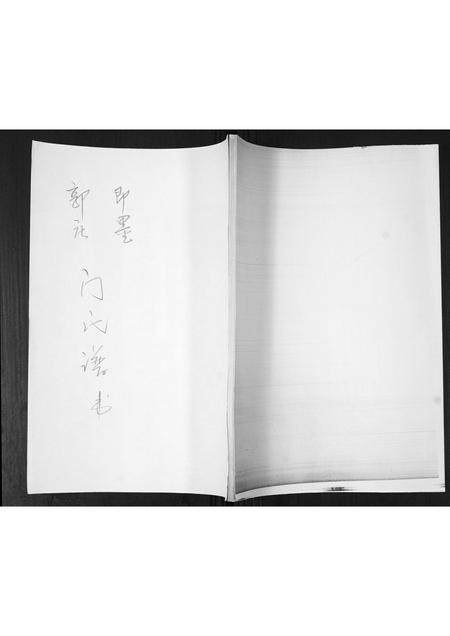 即墨
郭庄
门氏谱书